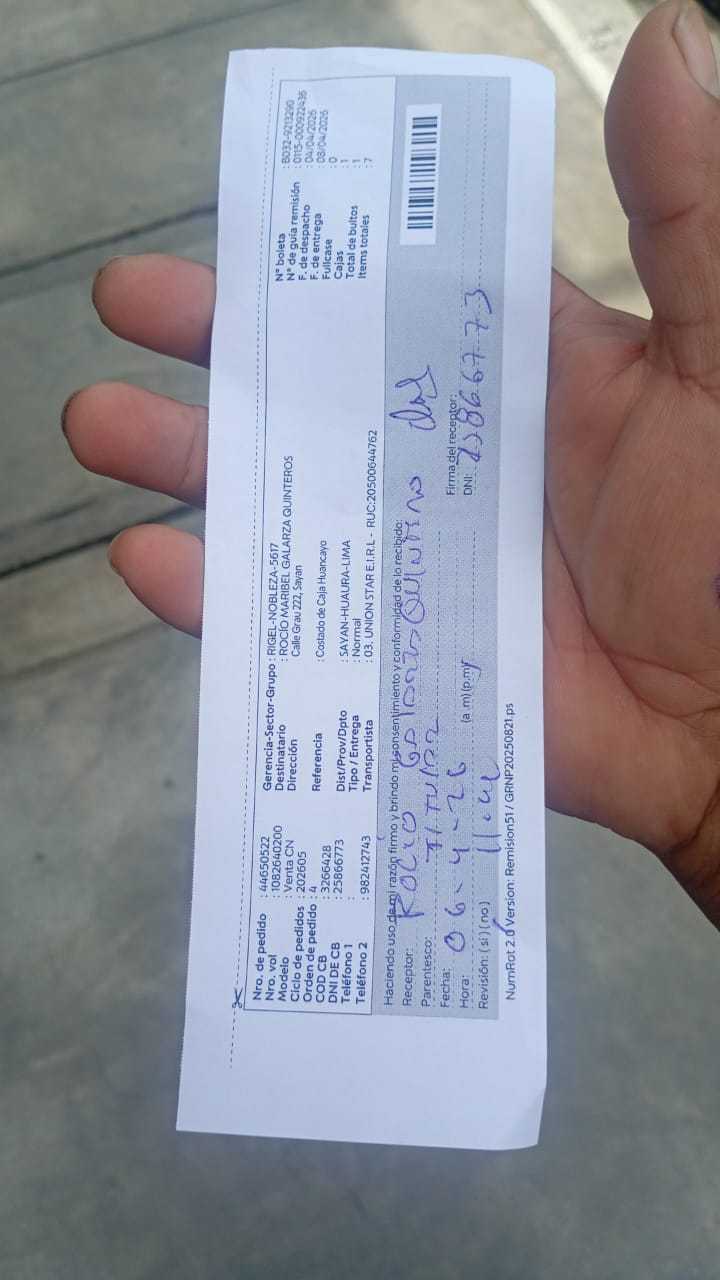 Nro. de pedido : 44650522
Nro. vol : 1082640200
Modelo : Venta CN
Ciclo de pedidos : 202605
Orden de pedido : 4
COD CB : 3266428
DNI DE CB : 25866773
Teléfono 1 :
Teléfono 2 : 982412743
Gerencia-Sector-Grupo : RIGEL-NOBLEZA-5617
Destinatario : ROCÍO MARIBEL GALARZA QUINTEROS
Dirección Calle Grau 222, Sayan
Referencia : Costado de Caja Huancayo
Dist/Prov/Dpto : SAYAN-HUAURA-LIMA
Tipo / Entrega : Normal
Transportista : 03. UNION STAR E.I.R.L - RUC:20500644762
N° boleta : B032-9213290
N° de guía remisión : 0115-000922436
F. de despacho : 04/04/2026
F. de entrega : 08/04/2026
Fullcase : 0
Cajas : 1
Total de bultos : 1
Items totales : 7
Haciendo uso de mi razón firmo y brindo mi consentimiento y conformidad de lo recibido:
Receptor: ROCIO
Parentesco: TITULAR
Fecha: 06-4-26
Hora: (a.m) (p.m)
Revisión: (si) (no)
Firma del receptor:
DNI: 25866773
NumRot 2.0 Version: Remision51 / GRNP20250821.ps